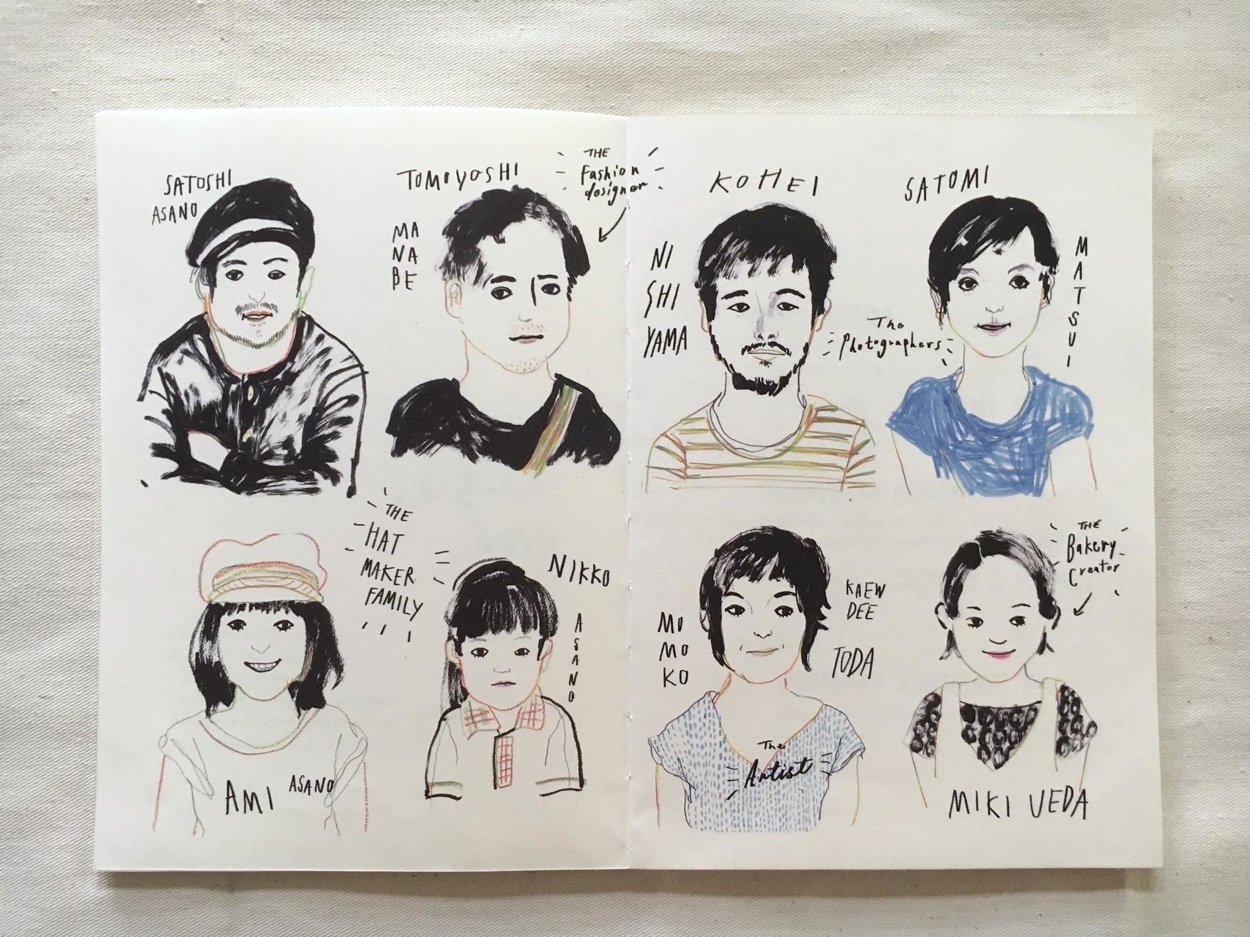 SATOSHI
ASANO
TOMIYOSHI
MA
NA
BE
THE
Fashion
designer
KOHEI
NI
SHI
YAMA
The
Photographers
SATOMI
MATSUI
THE
HAT
MAKER
FAMILY
AMI ASANO
NIKKO
ASANO
MO
MO
KO
KAEW
DEE
TODA
The
Artist
THE
Bakery
Creator
MIKI UEDA